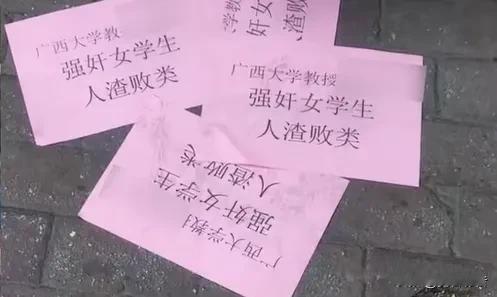 广西大学教
强奸女学生
人渣败类
学教
奸女学
渣败
广西大学教授
强奸女学生
人渣败类
广西大学教
强奸女学生
人渣败类